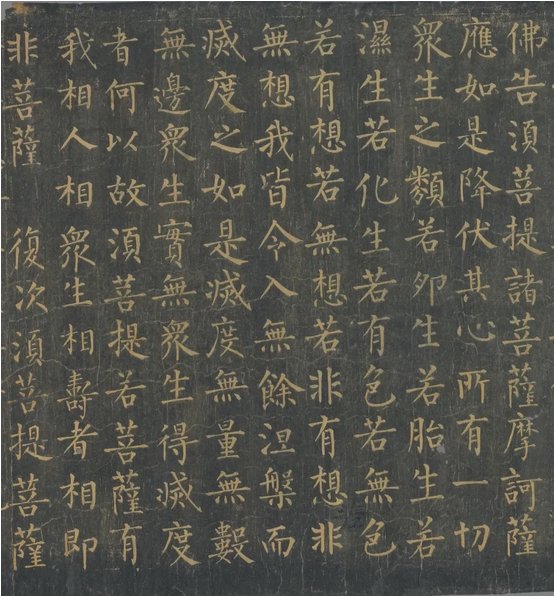 佛告須菩提諸菩薩摩訶薩
應如是降伏其心所有一切
衆生之類若卵生若胎生若
濕生若化生若有色若無色
若有想若無想若非有想非
無想我皆令入無餘涅槃而
滅度之如是滅度無量無數
無邊衆生實無衆生得滅度
者何以故須菩提若菩薩有
我相人相衆生相壽者相即
非菩薩 復次須菩提菩薩